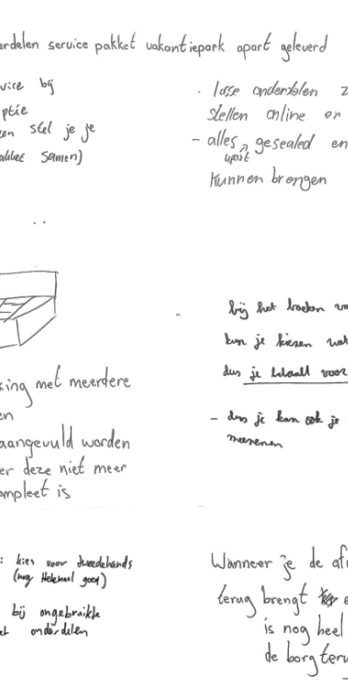 erdelen service pakket vakantiepark apart geleverd
vice bij
ptie
en stel je je
akket samen)
· losse onderdelen z
stellen online or
- alles apart gesealed en
kunnen brengen
bij het boeken va
kun je kiesen wat
dus je betaalt voor
- dus je kan ook je
meenemen
king met meerdere
en
aangevuld worden
er deze niet meer
mpleet is
: kies voor tweedehands
(nog Helemaal goed)
bij ongebruikte
et onderdelen
Wanneer je de afu
terug brengt e
is nog heel
de borg teru